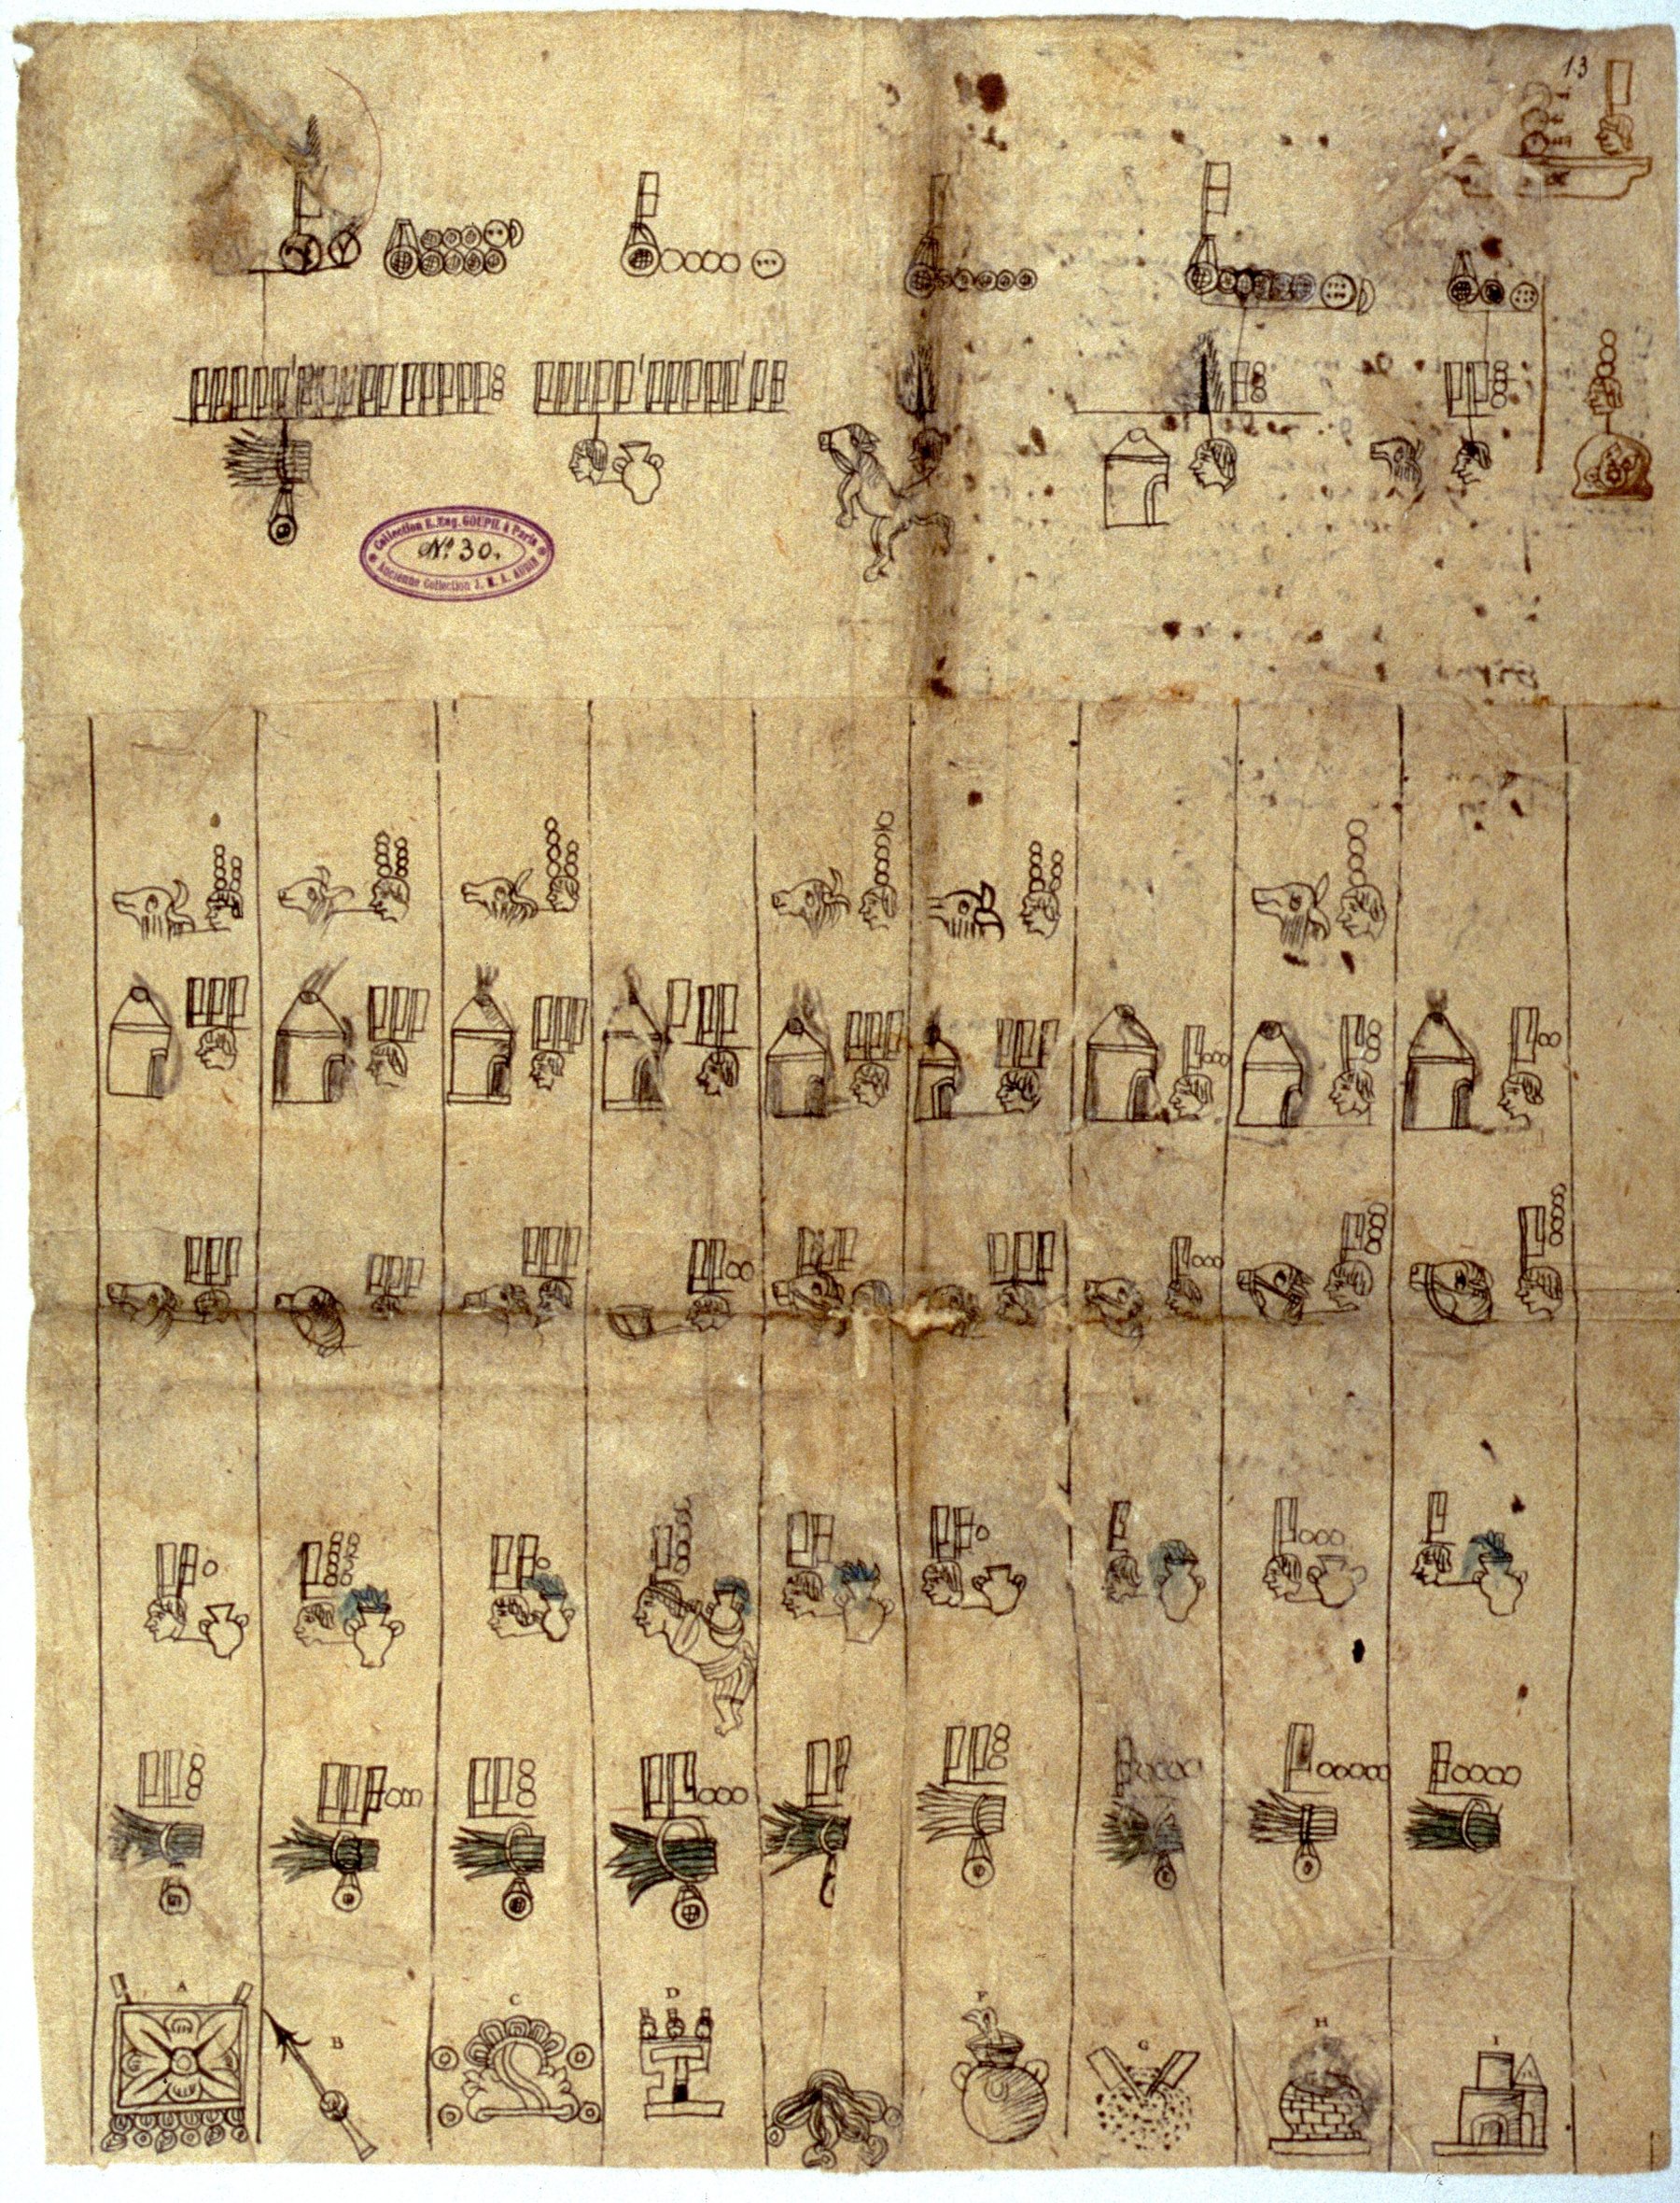 13
Collection E. Eug. GOUPIL à Paris
Nº 30.
Ancienne Collection J. M. A. AUBIN
A
B
C
D
F
G
H
I